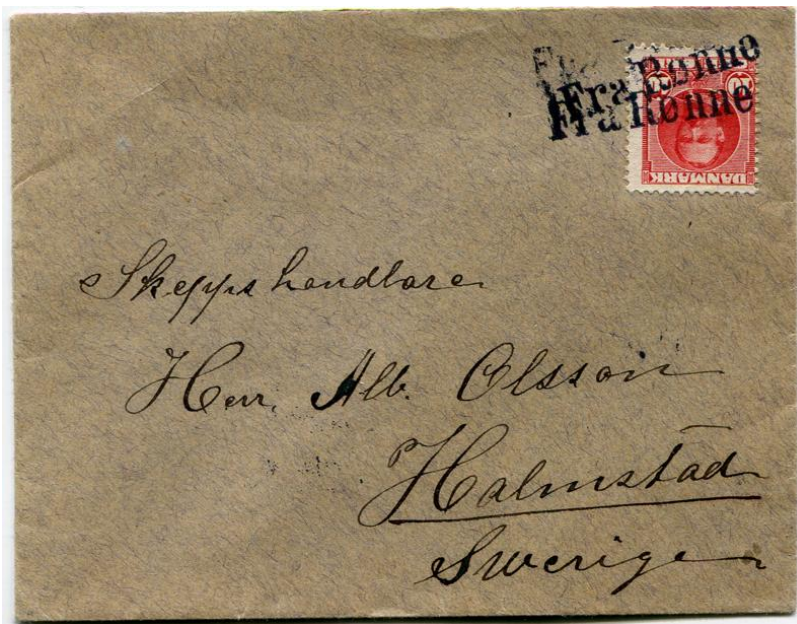 Fra Rønne
Fra Rønne
10 10
DANMARK
Skeppshandlare
Herr. Alb. Olsson
Halmstad
Sverige